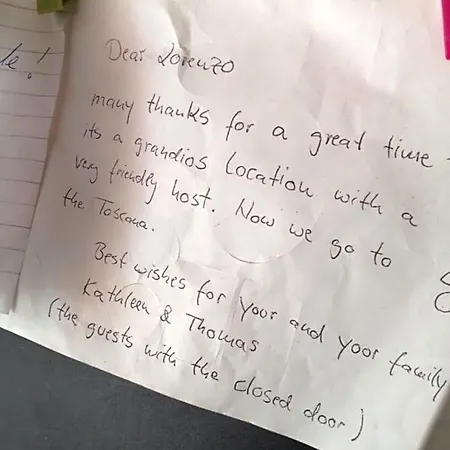 le!
Dear Lorenzo
many thanks for a great time
its a grandios location with a
very friendly host. Now we go to
the Toscana.
Best wishes for yoor and yoor family
Kathleen & Thomas
(the guests with the closed door)